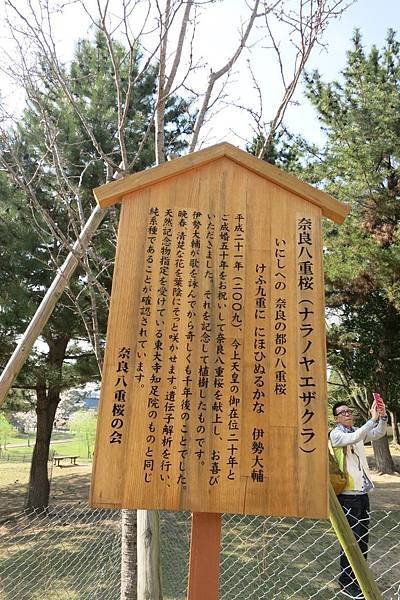 奈良八重桜（ナラノヤエザクラ）
いにしへの 奈良の都の八重桜
けふ九重に にほひぬるかな 伊勢大輔
平成二十一年（二〇〇九）、今上天皇の御在位二十年と
ご成婚五十年をお祝いして奈良八重桜を献上し、お喜び
いただきました。それを記念して植樹したものです。
伊勢大輔が歌を詠んでから奇しくも千年後のことでした。
晩春、清楚な花を葉陰にそっと咲かせます。遺伝子解析を行い、
天然記念物指定を受けている東大寺知足院のものと同じ
純系種であることが確認されています。
奈良八重桜の会